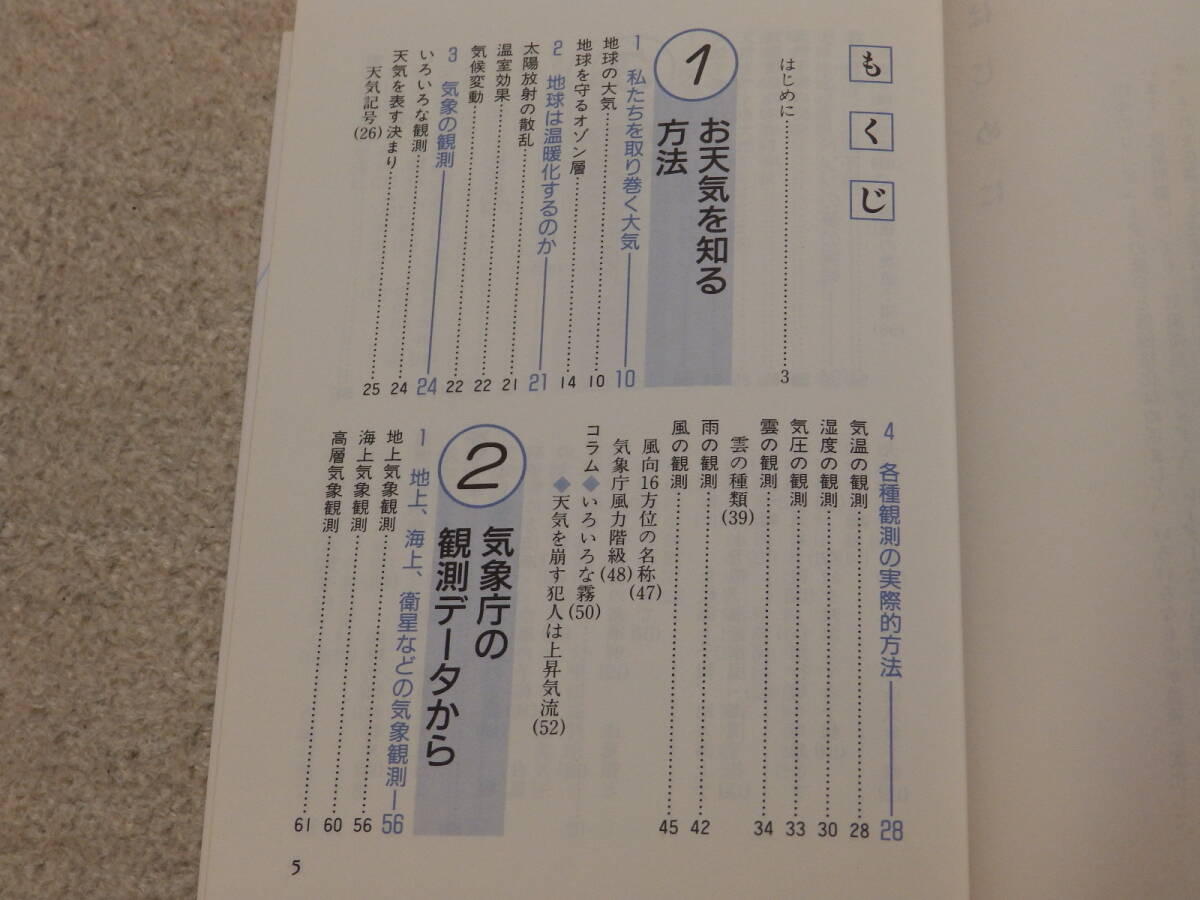 もくじ
はじめに……3
1 お天気を知る
方法
1 私たちを取り巻く大気――10
地球の大気……10
地球を守るオゾン層……14
2 地球は温暖化するのか――21
太陽放射の散乱……21
温室効果……22
気候変動……22
3 気象の観測――24
いろいろな観測……24
天気を表す決まり……25
天気記号(26)
4 各種観測の実際的方法――28
気温の観測……28
湿度の観測……30
気圧の観測……33
雲の観測……34
雲の種類(39)
雨の観測……42
風の観測……45
風向16方位の名称(47)
気象庁風力階級(48)
コラム◆いろいろな霧(50)
◆天気を崩す犯人は上昇気流(52)
2 気象庁の
観測データから
1 地上、海上、衛星などの気象観測―56
地上気象観測……56
海上気象観測……60
高層気象観測……61
5